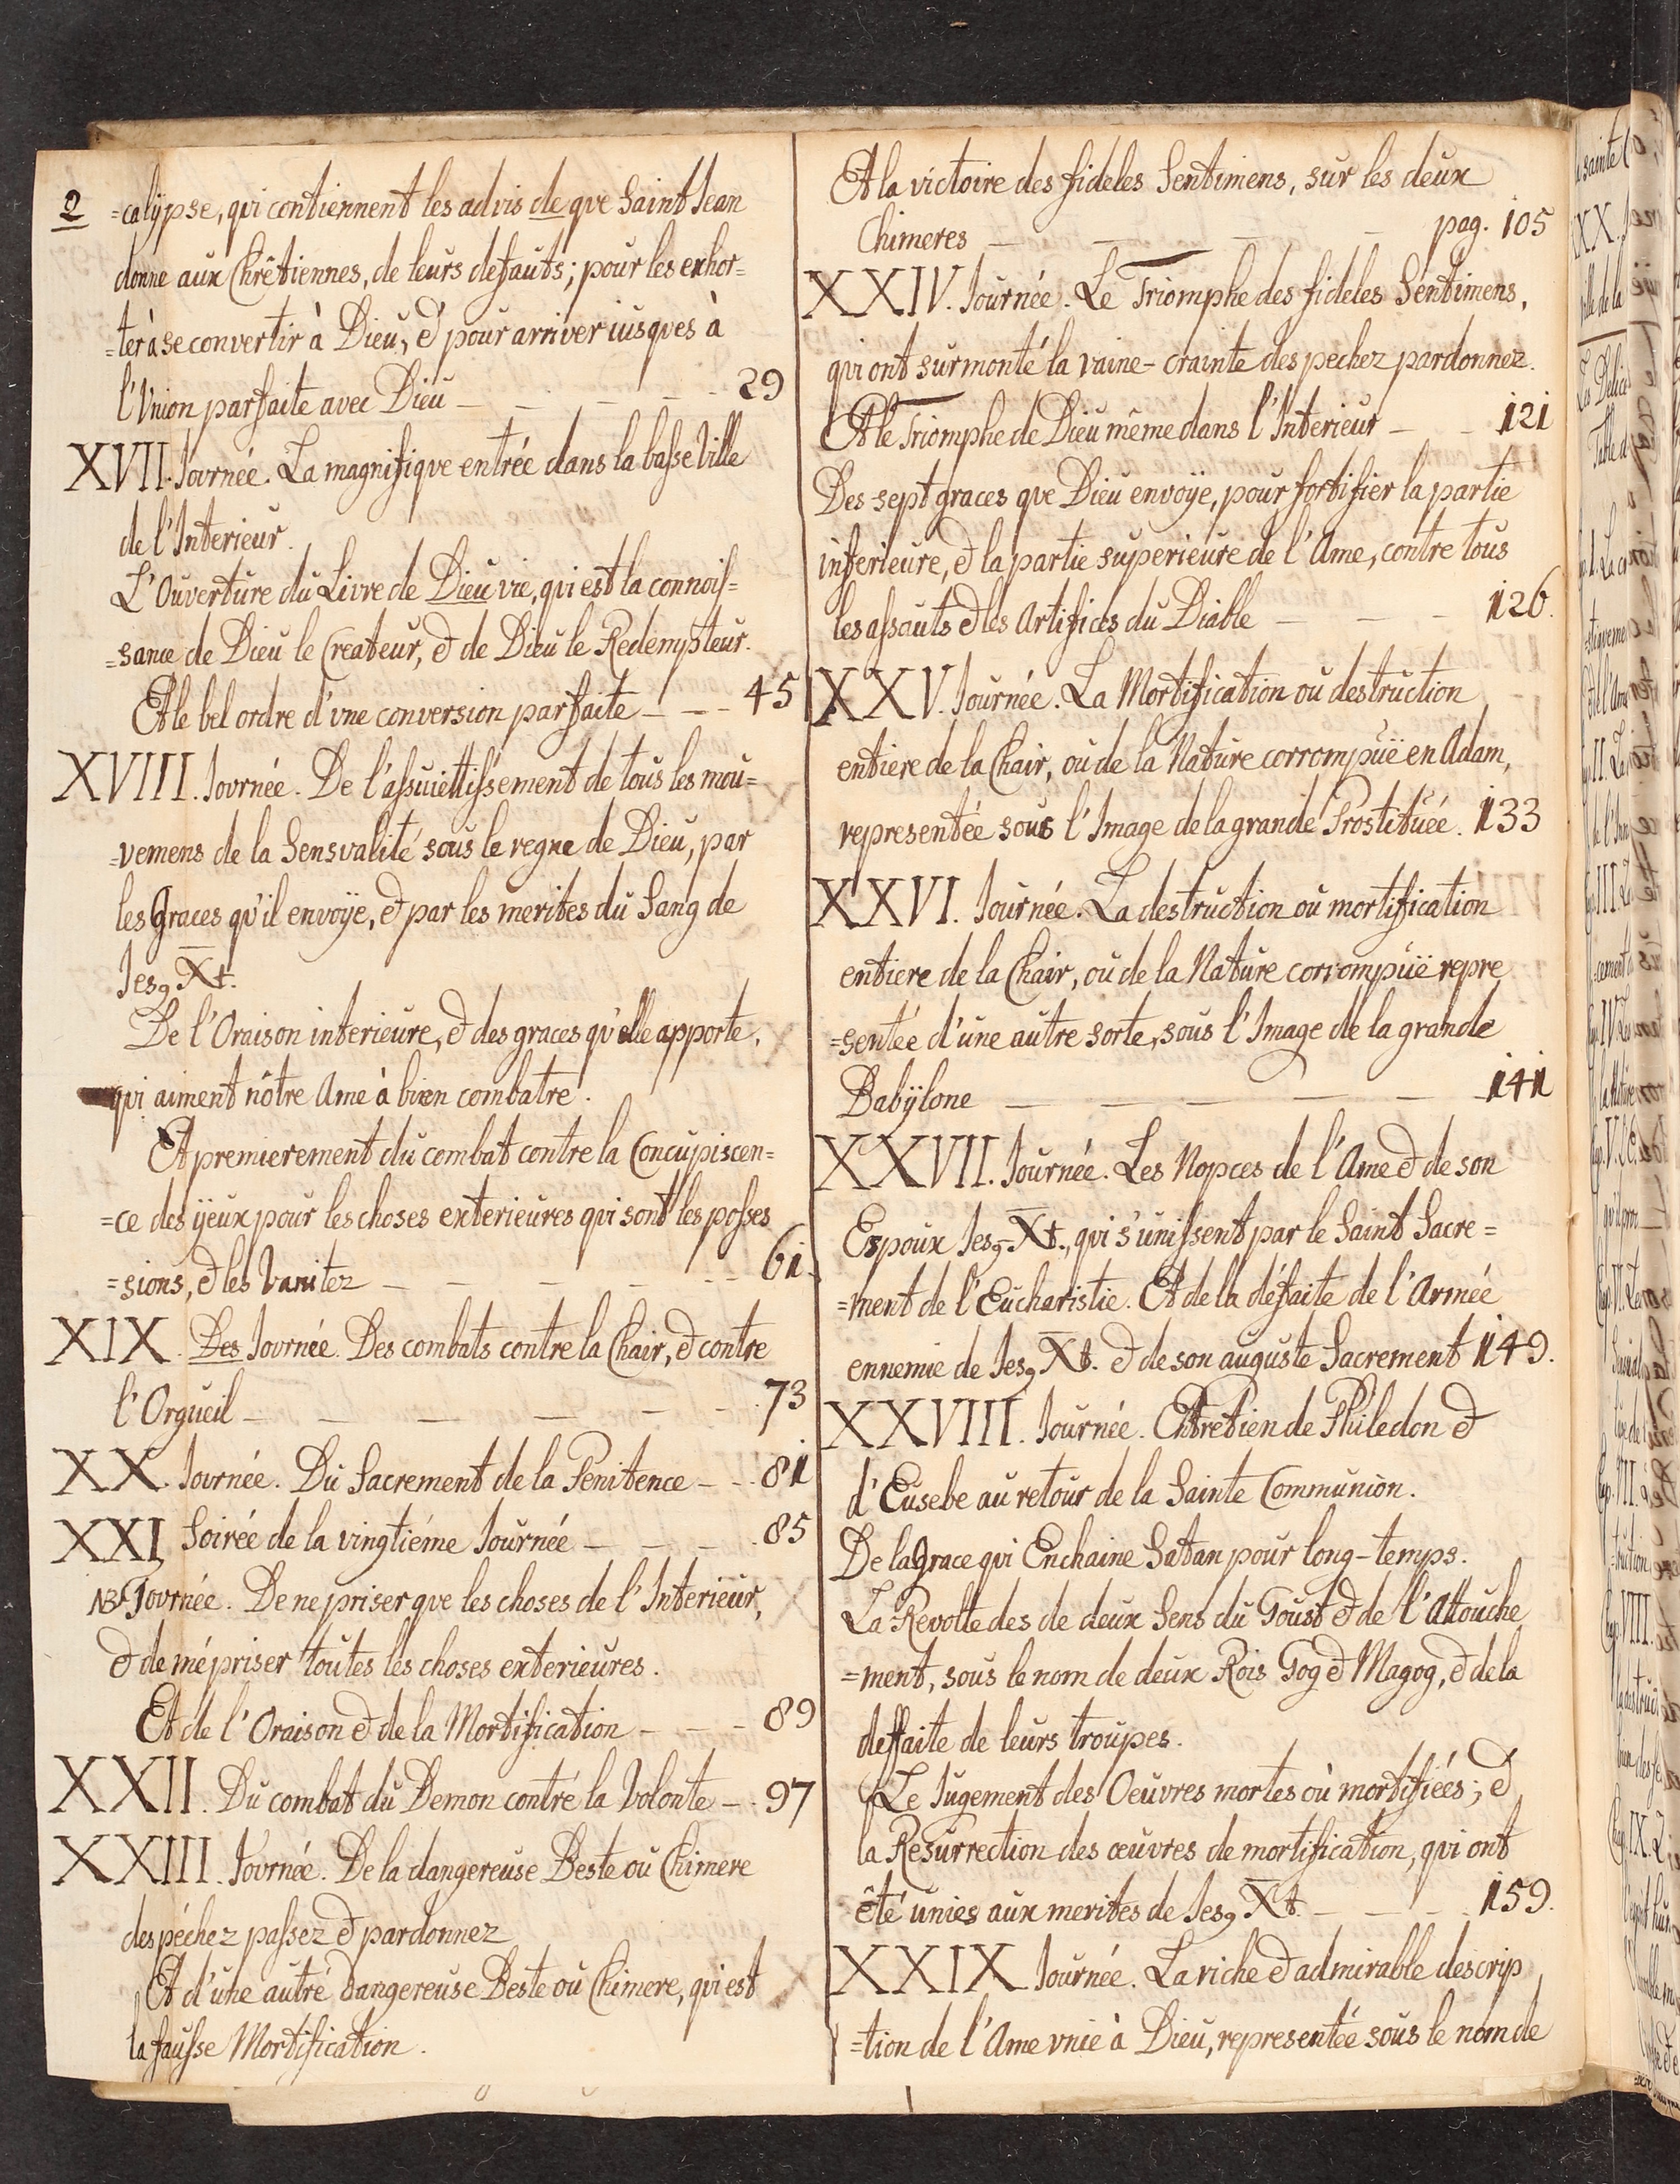 2
=calÿpse, qvi contiennent les advis de qve Saint Jean
donne aux Chrêtiennes, de leurs defauts; pour les exhor=
=ter à se convertir à Dieu, & pour arriver iusqves à
l'Vnion parfaite avec Dieu — — — — — 29
XVII. Journée. La magnifiqve entrée dans la basse Ville
de l'Interieur.
L'Ouverture du Livre de Dieu vie, qvi est la connois=
=sance de Dieu le Createur, & de Dieu le Redempteur.
Et le bel ordre d'vne conversion parfaite — — — 45
XVIII. Journée. De l'assuiettissement de tous les mou=
=vemens de la Sensvalité sous le regne de Dieu, par
les Graces qv'il envoÿe, & par les merites du Sang de
Jesꝯ Xt.
De l'Oraison interieure, & des graces qv'elle apporte,
qvi aiment nôtre Ame à bien combatre.
Et premierement du combat contre la Concupiscen=
=ce des ÿeux pour les choses exterieures qvi sont les posses
=sions, & les Vanitez — — — — — 61.
XIX. Des Journée. Des combats contre la Chair, & contre
l'Orgueil — — — — — — 73
XX. Journée. Du Sacrement de la Penitence — — 81
XXI Soirée de la vingtiéme Journée — — — 85
NB Journée. De ne priser qve les choses de l'Interieur,
& de mépriser toutes les choses exterieures.
Et de l'Oraison & de la Mortification — — — 89
XXII. Du combat du Demon contre la Volonte — . 97
XXIII. Journée. De la dangereuse Beste ou Chimere
des péchez passez & pardonnez
Et d'une autre dangereuse Beste ou Chimere, qvi est
la fausse Mortification.
Et la victoire des fideles Sentimens, sur les deux
Chimeres — — — — pag. 105
XXIV. Journée. Le Triomphe des fideles Sentimens,
qvi ont surmonté la vaine-crainte des pechez pardonnez.
Et le Triomphe de Dieu même dans l'Interieur — — 121
Des sept graces qve Dieu envoÿe, pour fortifier la partie
inferieure, & la partie superieure de l'Ame, contre tous
les assauts & les Artifices du Diable — — — 126.
XXV. Journée. La Mortification ou destruction
entiere de la Chair, ou de la Nature corrompuë en Adam,
representée sous l'Image de la grande Prostituée. 133
XXVI. Journée. La destruction ou mortification
entiere de la Chair, ou de la Nature corrompuë repre
=sentée d'une autre sorte, sous l'Image de la grande
Babÿlone — — — — — — 141
XXVII. Journée. Les Nopces de l'Ame & de son
Espoux Jesꝯ Xt., qvi s'unissent par le Saint Sacre=
=ment de l'Eucharistie. Et de la défaite de l'Armée
ennemie de Jesꝯ Xt. & de son auguste Sacrement 149.
XXVIII. Journée. Entretien de Philedon &
d'Eusebe au retour de la Sainte Communion.
De la Grace qvi Enchaine Satan pour long-temps.
La Revolte des de deux Sens du Goust & de l'Attouche
=ment, sous le nom de deux Rois Gog & Magog, & de la
deffaite de leurs troupes.
Le Jugement des Oeuvres mortes où mortifiées; &
la Resurrection des œuvres de mortification, qvi ont
êté unies aux merites de Jesꝯ Xt. — — — 159.
XXIX Journée. La riche & admirable descrip
=tion de l'Ame vnie à Dieu, representée sous le nom de